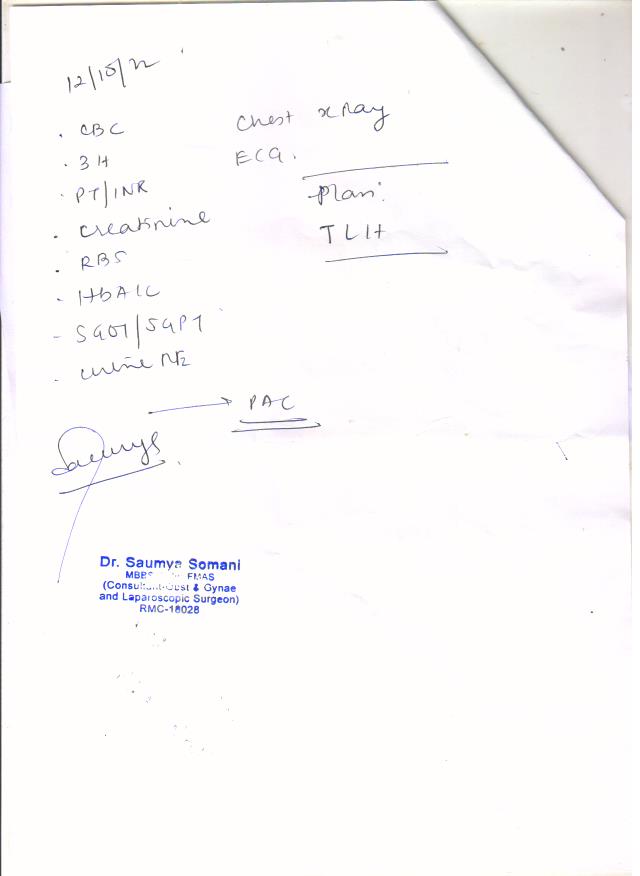 12/10/22
. CBC
. 3H
. PT/INR
. Creatinine
. RBS
. HbA1C
- SGOT/SGPT
. urine
Chest xRay
ECG.
Plan:
TLH
→ PAC
Saumya
Dr. Saumya Somani
FMAS
& Gynae
and Laparoscopic Surgeon)
RMC-18028